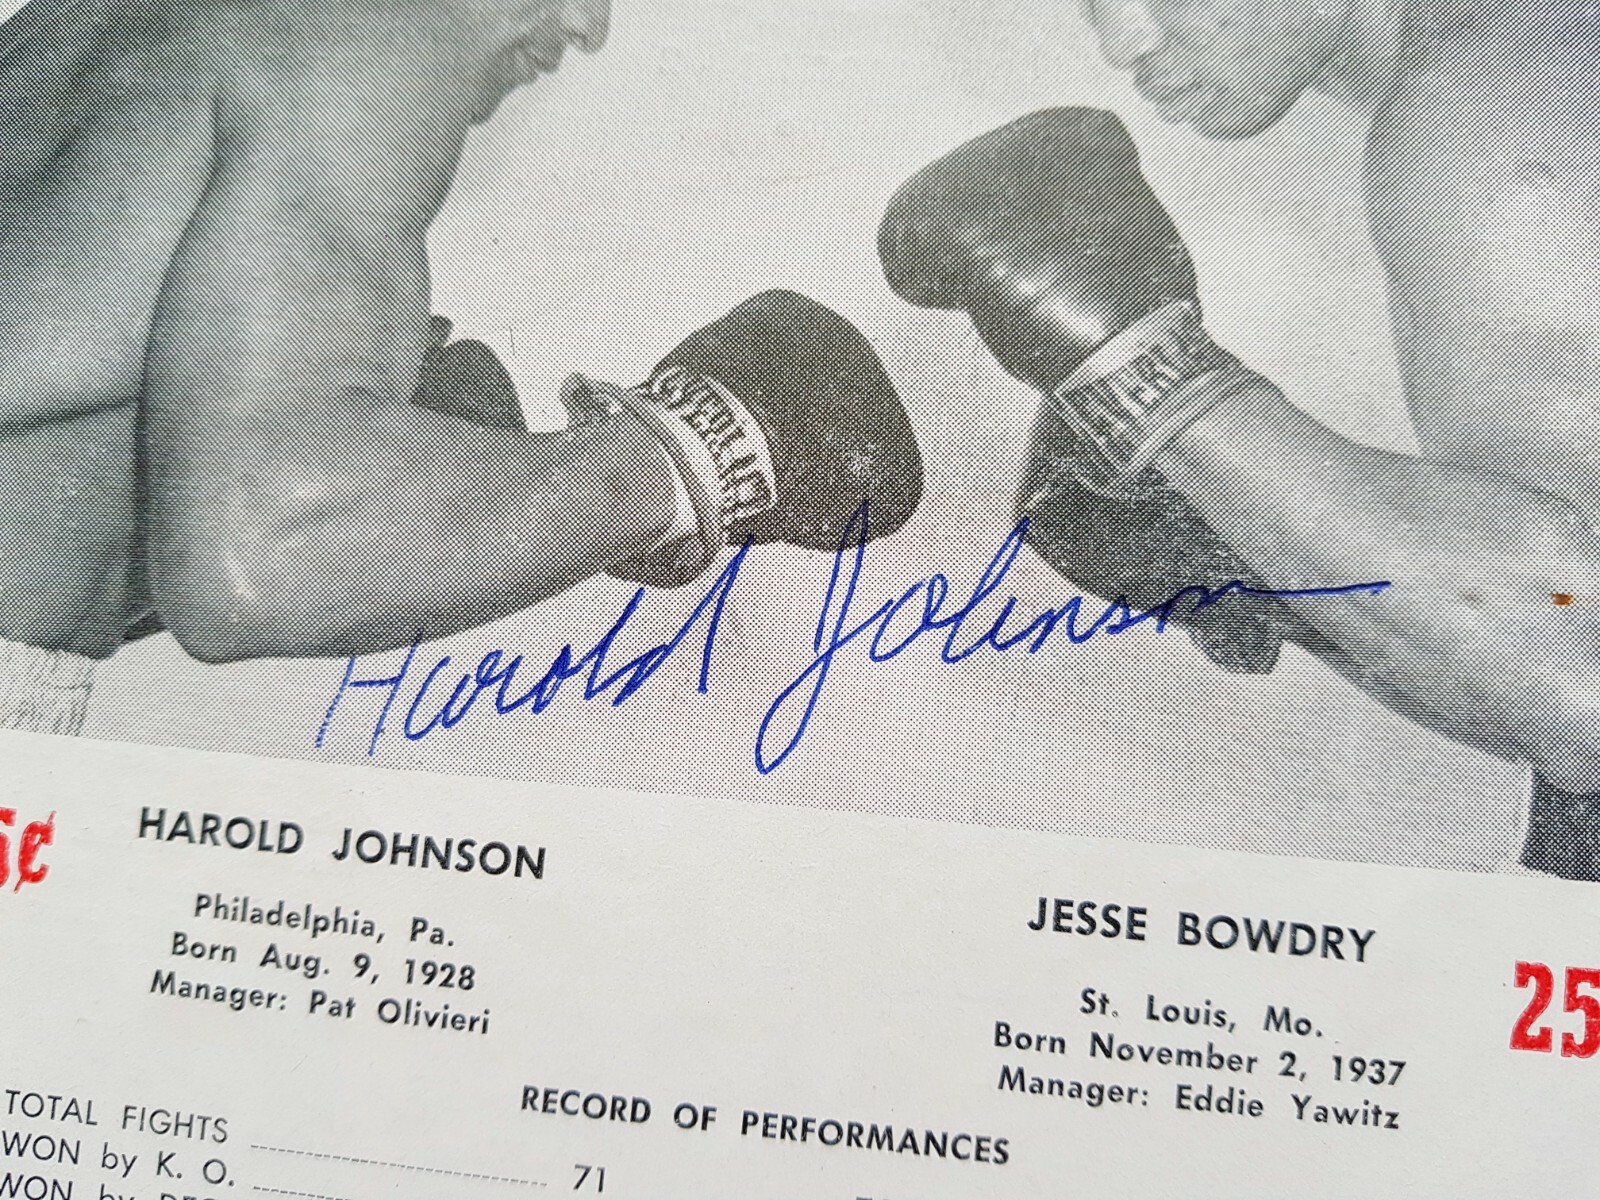 EVERLAST
EVERLAST
Harold Johnson
¢
HAROLD JOHNSON
Philadelphia, Pa.
Born Aug. 9, 1928
Manager: Pat Olivieri
JESSE BOWDRY
St. Louis, Mo.
Born November 2, 1937
Manager: Eddie Yawitz
25
RECORD OF PERFORMANCES
TOTAL FIGHTS 71
WON by K. O.
WON by